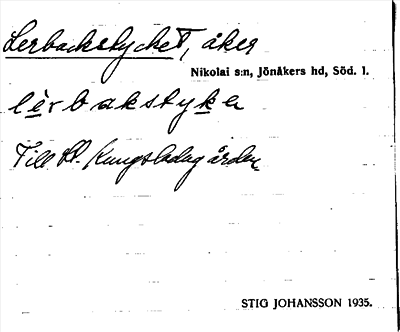 Lerbackstycket, åker
Nikolai s:n, Jönåkers hd, Söd. l.
lèrbakstyke
Till St. Kungsladugården
STIG JOHANSSON 1935.